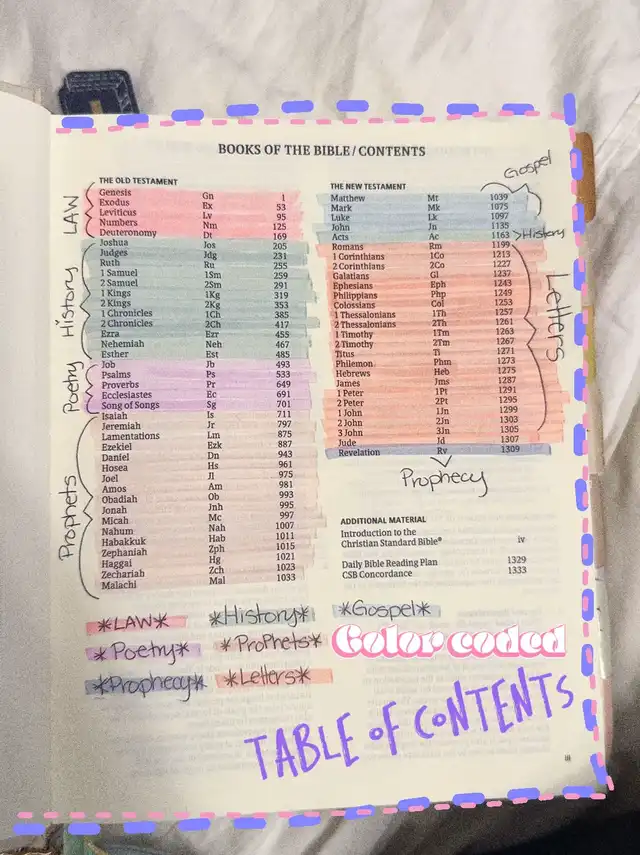 BOOKS OF THE BIBLE/CONTENTS
THE OLD TESTAMENT
Genesis Gn 1
Exodus Ex 53
Leviticus Lv 95
Numbers Nm 125
Deuteronomy Dt 169
Joshua Jos 205
Judges Jdg 231
Ruth Ru 255
1 Samuel 1Sm 259
2 Samuel 2Sm 291
1 Kings 1Kg 319
2 Kings 2Kg 353
1 Chronicles 1Ch 385
2 Chronicles 2Ch 417
Ezra Ezr 455
Nehemiah Neh 467
Esther Est 485
Job Jb 493
Psalms Ps 533
Proverbs Pr 649
Ecclesiastes Ec 691
Song of Songs Sg 701
Isaiah Is 711
Jeremiah Jr 797
Lamentations Lm 875
Ezekiel Ezk 887
Daniel Dn 943
Hosea Hs 961
Joel Jl 975
Amos Am 981
Obadiah Ob 993
Jonah Jnh 995
Micah Mc 997
Nahum Nah 1007
Habakkuk Hab 1011
Zephaniah Zph 1015
Haggai Hg 1021
Zechariah Zch 1023
Malachi Mal 1033
LAW
History
Poetry
Prophets
THE NEW TESTAMENT
Gospel
Matthew Mt 1039
Mark Mk 1075
Luke Lk 1097
John Jn 1135
Acts Ac 1163 >History
Romans Rm 1199
1 Corinthians 1Co 1213
2 Corinthians 2Co 1227
Galatians Gl 1237
Ephesians Eph 1243
Philippians Php 1249
Colossians Col 1253
1 Thessalonians 1Th 1257
2 Thessalonians 2Th 1261
1 Timothy 1Tm 1263
2 Timothy 2Tm 1267
Titus Ti 1271
Philemon Phm 1273
Hebrews Heb 1275
James Jms 1287
1 Peter 1Pt 1291
2 Peter 2Pt 1295
1 John 1Jn 1299
2 John 2Jn 1303
3 John 3Jn 1305
Jude Jd 1307
Revelation Rv 1309
Letters
Prophecy
ADDITIONAL MATERIAL
Introduction to the
Christian Standard Bible® iv
Daily Bible Reading Plan 1329
CSB Concordance 1333
*LAW* *History* *Gospel*
*Poetry* *Prophets*
*Prophecy* *Letters*
Color coded
TABLE OF CONTENTS
iii